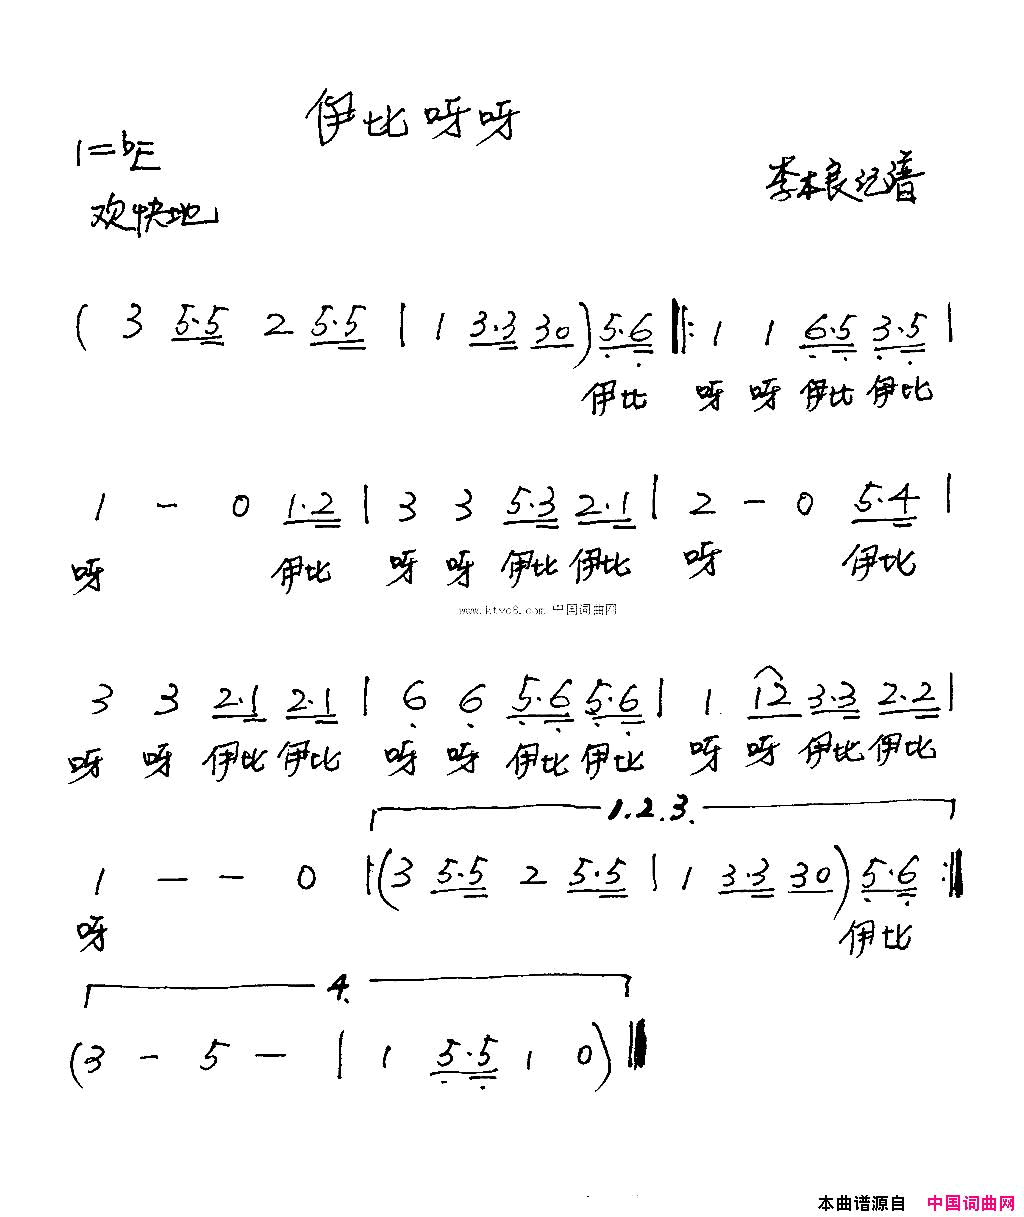 伊比呀呀
1=bE
李本良记谱
欢快地
( 3 5·5 2 5·5 | 1 3·3 30 ) 5·6 ‖: 1 1 6·5 3·5 |
伊比 呀 呀 伊比 伊比
1 - 0 1·2 | 3 3 5·3 2·1 | 2 - 0 5·4 |
呀 伊比 呀 呀 伊比 伊比 呀 伊比
www.ktvc8.com 中国词曲网
3 3 2·1 2·1 | 6 6 5·6 5·6 | 1 12 3·3 2·2 |
呀 呀 伊比 伊比 呀 呀 伊比 伊比 呀 呀 伊比 伊比
1.2.3.
1 - - 0 |: ( 3 5·5 2 5·5 | 1 3·3 30 ) 5·6 :‖
呀 伊比
4.
( 3 - 5 - | 1 5·5 1 0 ) ‖
本曲谱源自 中国词曲网